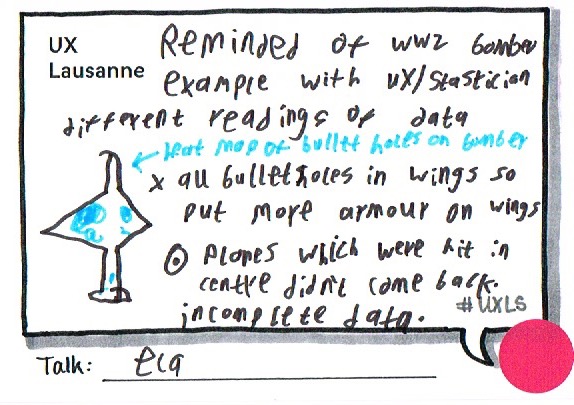 UX
Lausanne
Reminded of ww2 bomber
example with UX/Stastician
different readings of data
Heat map of bullet holes on bomber
x all bullet holes in wings so
put more armour on wings
Planes which were hit in
centre didn't come back.
incomplete data.
#UXLS
Talk: